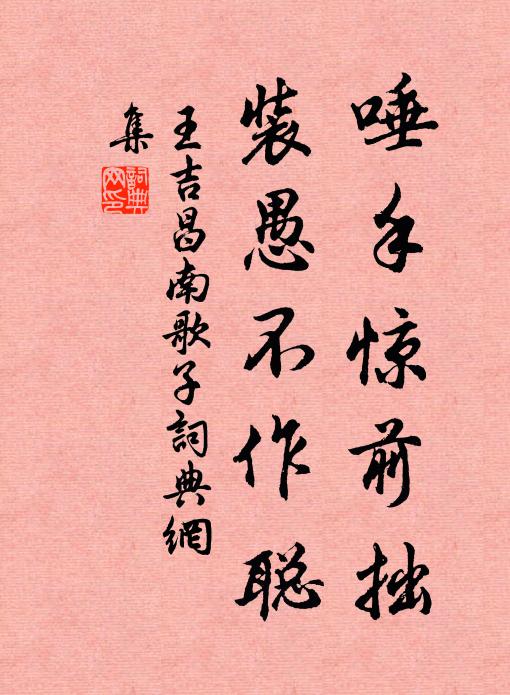 唾手惊前拙
装愚不作聪
王吉昌南歌子詞典網
集
詞典
网印